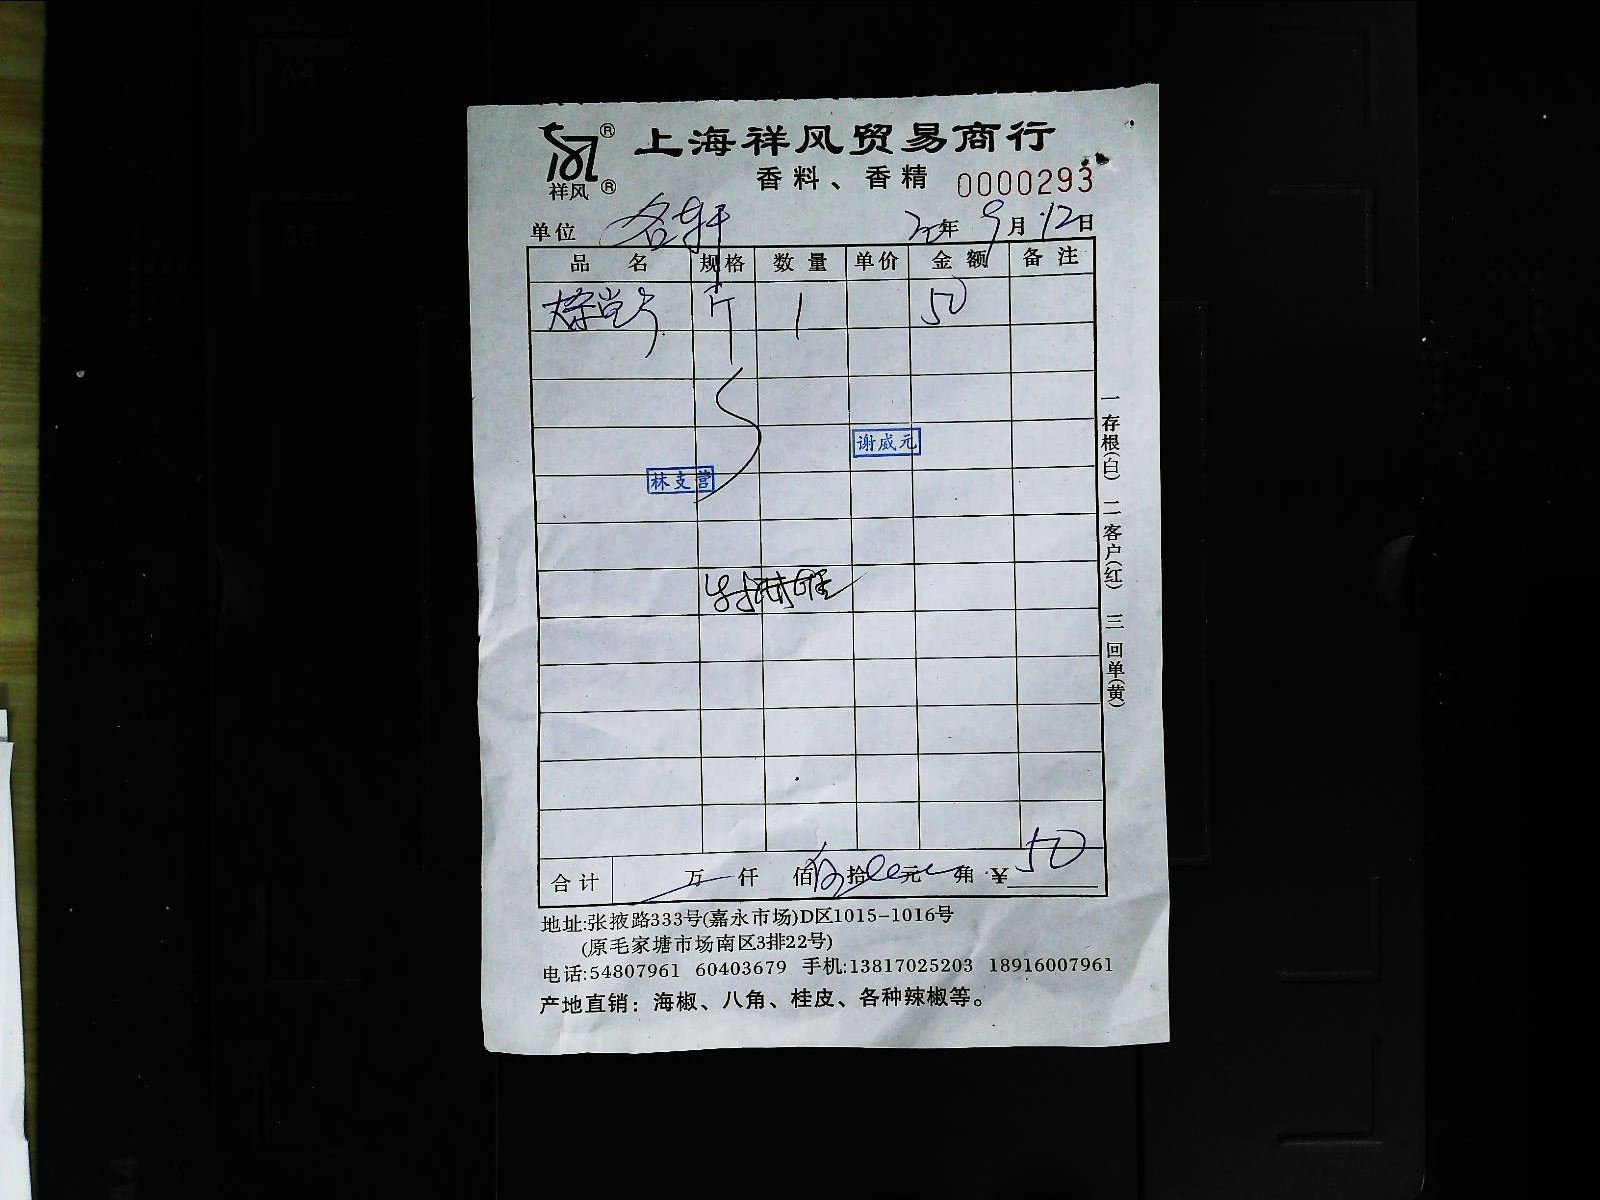 祥风 ® ®
上海祥风贸易商行
香料、香精 0000293
单位 名轩 年 9月12日
品名 规格 数量 单价 金额 备注
斤 1 50
谢威元
林支营
合计 万 仟 佰 拾 元 角 ¥50
一存根(白) 二客户(红) 三回单(黄)
地址:张掖路333号(嘉永市场)D区1015-1016号
(原毛家塘市场南区3排22号)
电话:54807961 60403679 手机:13817025203 18916007961
产地直销：海椒、八角、桂皮、各种辣椒等。